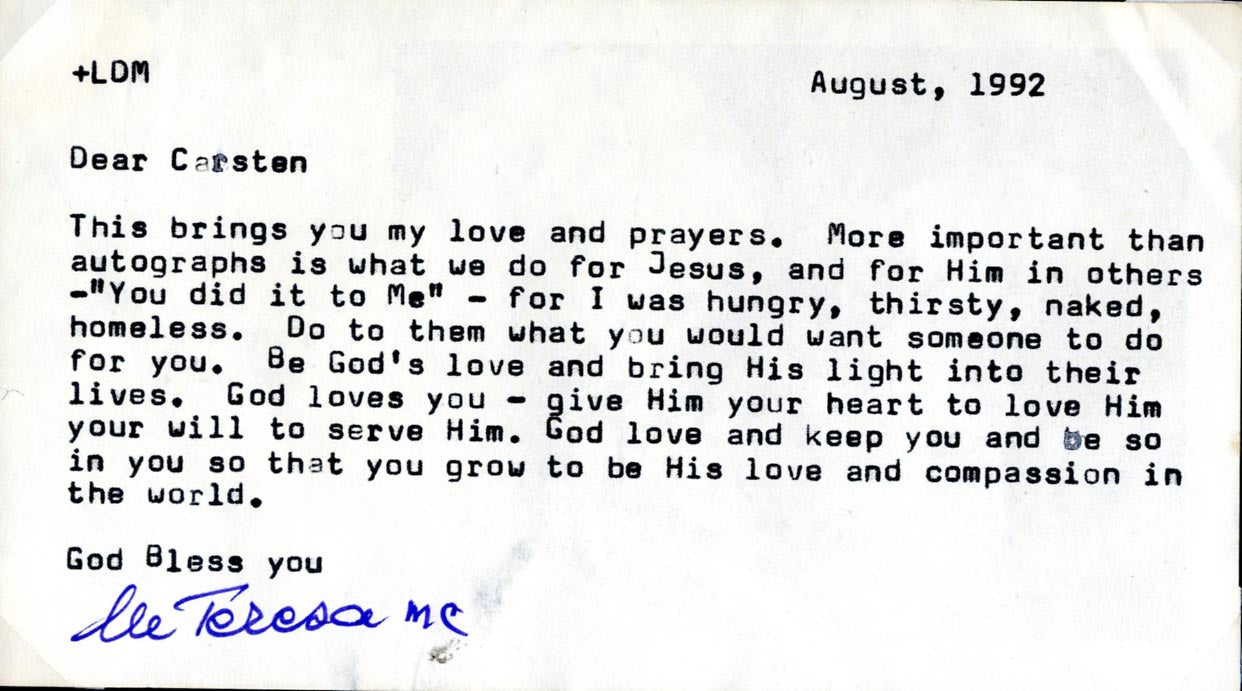 +LDM
August, 1992
Dear Carsten
This brings you my love and prayers. More important than
autographs is what we do for Jesus, and for Him in others
-"You did it to Me" - for I was hungry, thirsty, naked,
homeless. Do to them what you would want someone to do
for you. Be God's love and bring His light into their
lives. God loves you - give Him your heart to love Him
your will to serve Him. God love and keep you and be so
in you so that you grow to be His love and compassion in
the world.
God Bless you
lle Teresa mc